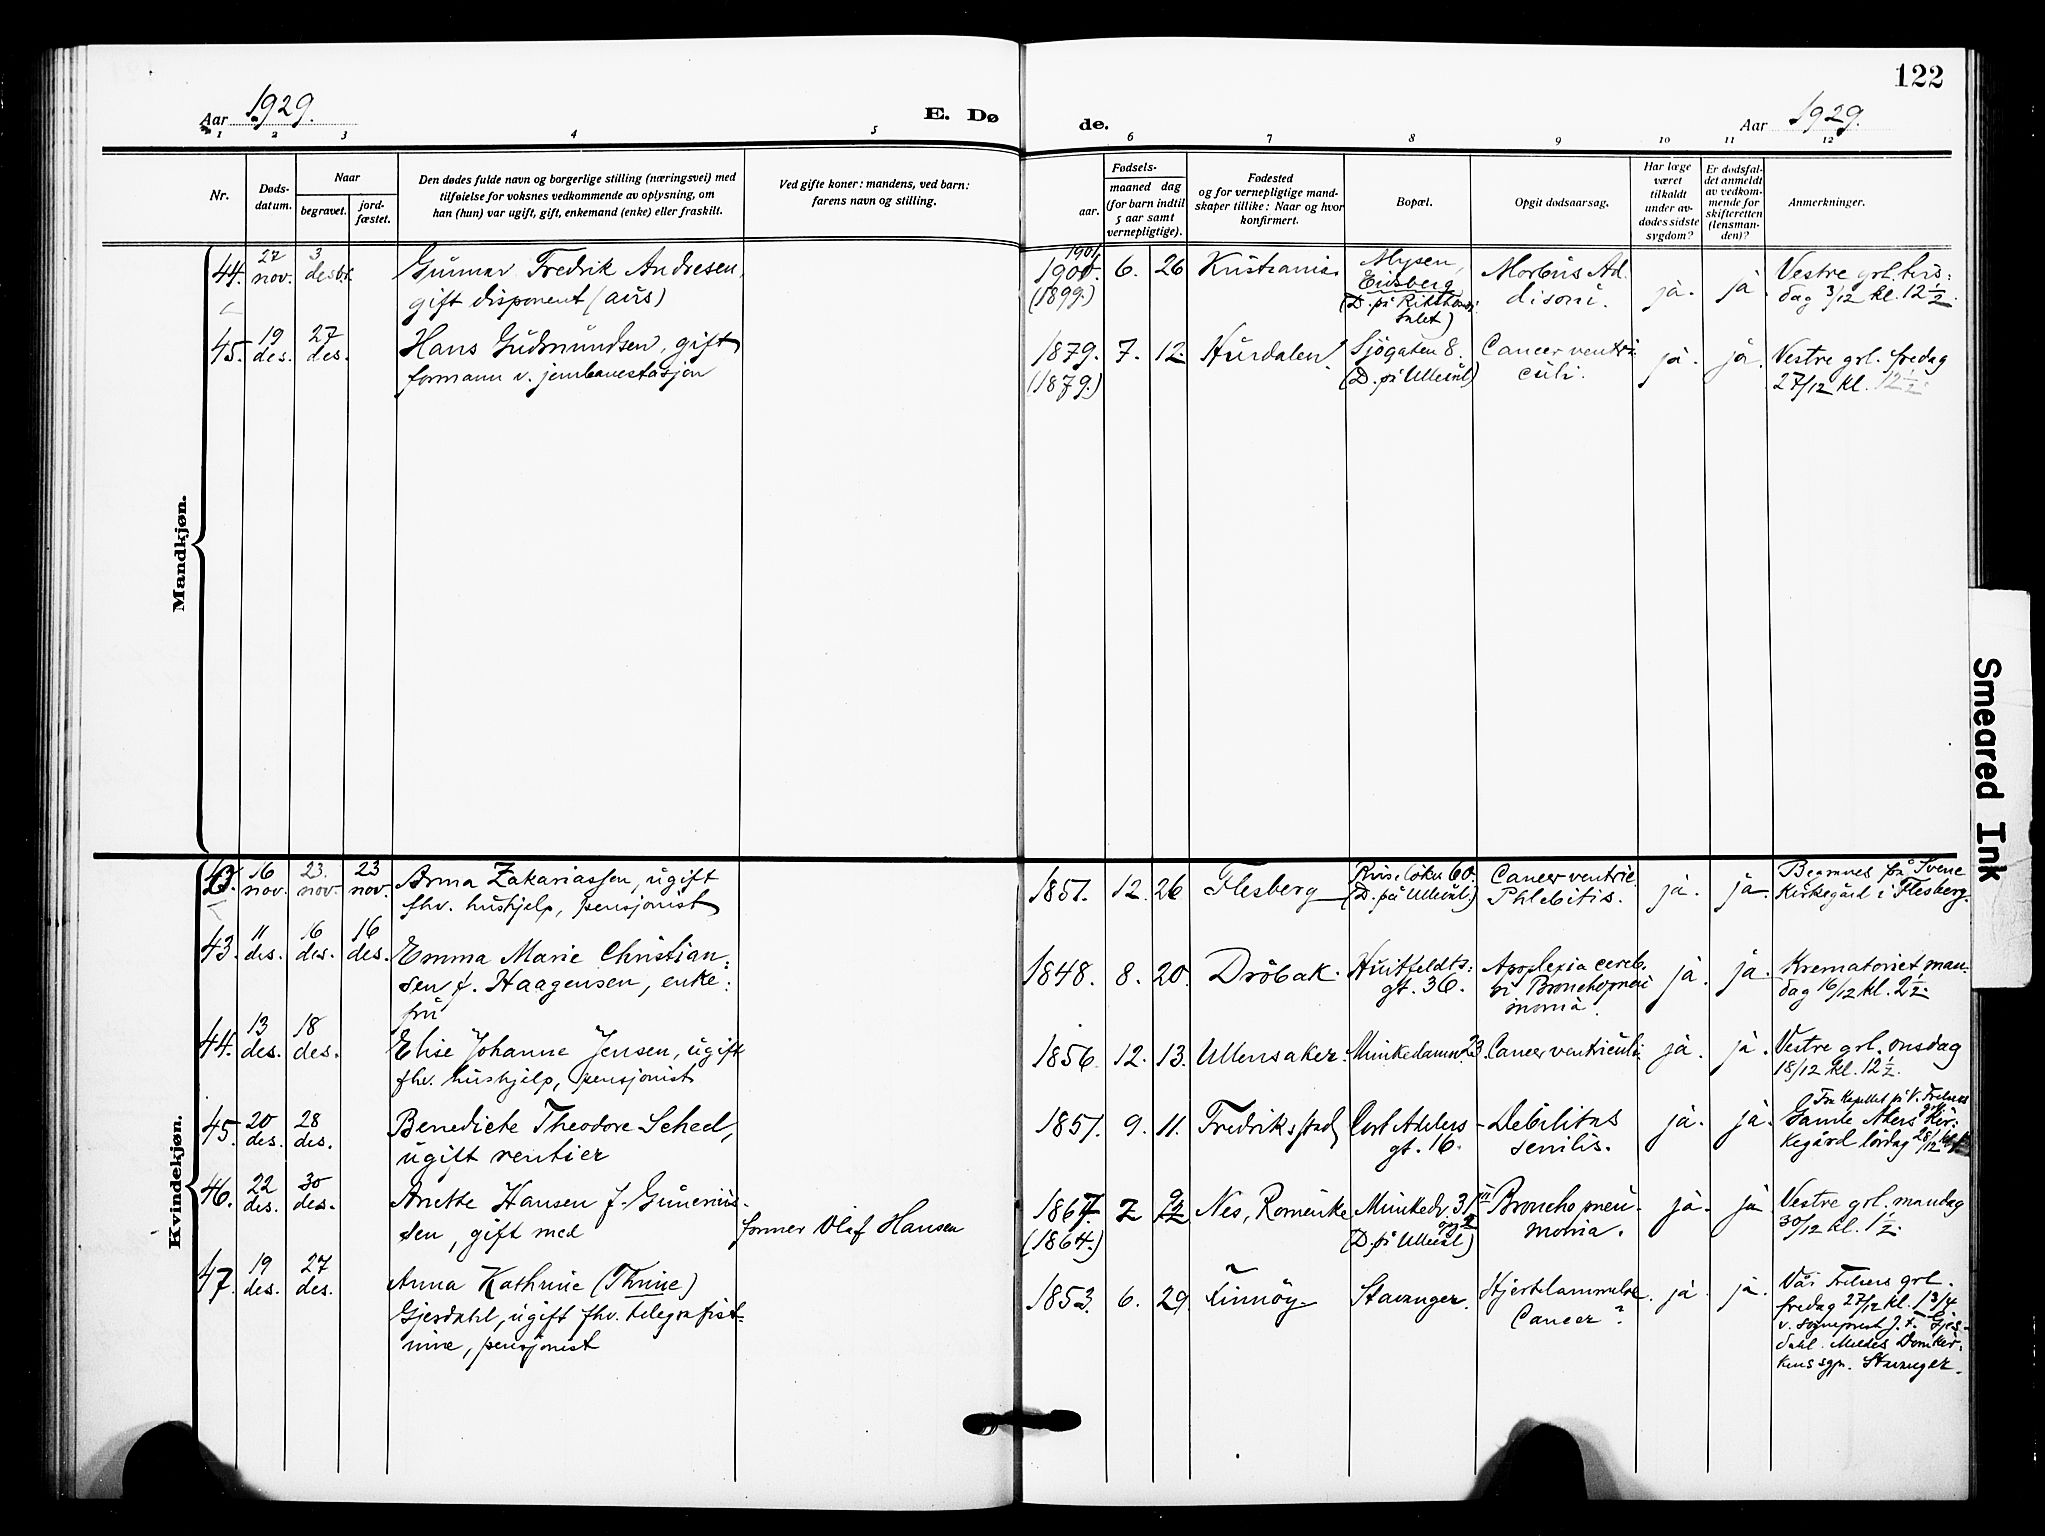 122
Aar 1929.
E. Dø
de.
Aar 1929.
1 2 3 4 5 6 7 8 9 10 11 12
Nr.
Døds-
datum.
Naar
begravet.
jord-
fæstet.
Den dødes fulde navn og borgerlige stilling (næringsvei) med
tilføielse for voksnes vedkommende av oplysning, om
han (hun) var ugift, gift, enkemand (enke) eller fraskilt.
Ved gifte koner: mandens, ved barn:
farens navn og stilling.
Fødsels-
aar.
maaned dag
(for barn indtil
5 aar samt
vernepligtige).
Fødested
og for vernepligtige mand-
skaper tillike: Naar og hvor
konfirmert.
Bopæl.
Opgit dødsaarsag.
Har læge
været
tilkaldt
under av-
dødes sidste
sygdom?
Er dødsfal-
det anmeldt
av vedkom-
mende for
skifteretten
(lensman-
den)?
Anmerkninger.
Mandkjøn.
44. 27 nov. 3 desbr.
Gunnar Fredrik Andresen,
gift disponent (aus)
1901
1900.
(1899.)
6. 26 Kristiania
Mysen,
Eidsberg
(D. på Rikshospi-
talet)
Morbus Ad-
disoni.
ja. ja
Vestre grl. tirs-
dag 3/12 kl. 12 1/2.
45. 19 des. 27 des.
Hans Gudmundsen, gift
formann v. jernbanestasjon
1879.
(1879.)
7. 12. Hurdalen.
Sjögaten 8.
(D. på Ullevål)
Cancer ventri-
culi.
ja. ja.
Vestre grl. fredag
27/12 kl. 12 1/2.
Kvindekjøn.
16 nov. 23. nov. 23 nov.
Anna Zakariassen, ugift
fhv. hushjelp, pensjonist
1851. 12. 26 Flesberg
(D. på Ullevål.)
Cancer ventric.
Phlebitis.
ja. ja.
Begraves på Svene
Kirkegård i Flesberg.
43. 11 des. 16 des. 16 des.
Emma Marie Christian-
sen f. Haagensen, enke-
fru
1848. 8. 20. Dröbak.
Huitfeldts-
gt. 36.
Apoplexia cereb-
ri Bronchopneu-
monia.
ja. ja.
Krematoriet man-
dag 16/12 kl. 2 1/2.
44. 13 des. 18 des.
Elise Johanne Jensen, ugift
fhv. hushjelp, pensjonist
1856. 12. 13. Ullensaker. Munkedamsv. 23. Cancer ventriculi ja. ja.
Vestre grl. onsdag
18/12 kl. 12 1/2.
45. 20 des. 28 des.
Benedicte Theodore Scheel,
ugift rentier
1851. 9. 11. Fredrikstad
Carl Adlers
gt. 16.
Debilitas
senilis.
ja. ja.
Fra kapellet på V. Frelsers
grl.
Gamle Akers Kir-
kegård lördag 28/12
46. 22 des. 30 des.
Anette Hansen f. Gunerius-
sen, gift med
former Olaf Hansen
1867.
(1864.)
Nes, Romerike
Munkedv. 31
(D. på Ullevål)
Bronchopneu-
monia.
ja. ja
Vestre grl. mandag
30/12 kl. 1 1/2.
47. 19 des. 27 des.
Anna Kathrine (Thrine)
Gjesdahl, ugift fhv. telegrafist-
inne, pensjonist
1853. 6. 29. Finnöy Stavanger.
Hjertelammelse
Cancer?
ja. ja.
Vår Frelsers grl.
fredag 27/12 kl. 13/4
v. sogneprest J. F. Gjes-
dahl. Meldes Domkir-
kens sgpr. Stavanger.
Smeared Ink